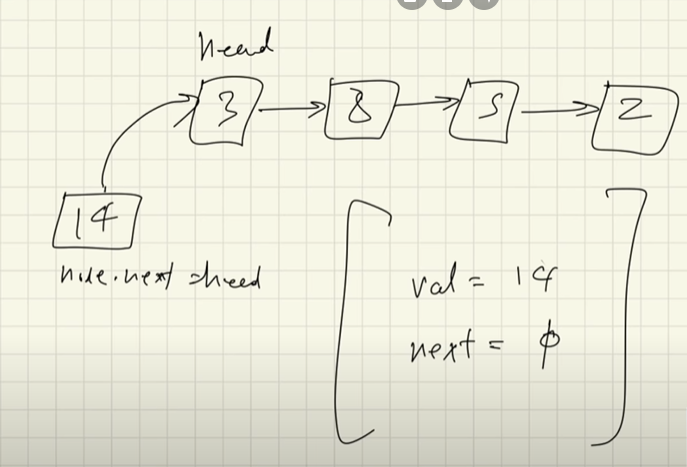 head
3 8 5 2
14
node.next = head
val = 14
next = φ